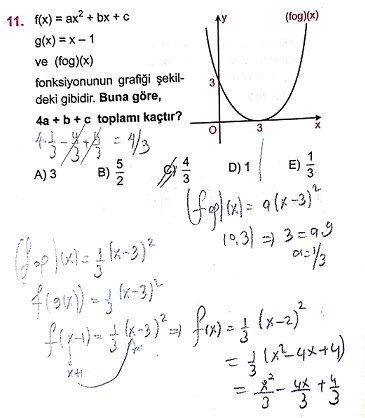 11. f(x) = ax² + bx + c
g(x) = x − 1
ve (fog)(x)
fonksiyonunun grafiği şekil-
deki gibidir. Buna göre,
4a + b + c toplamı kaçtır?
y
(fog)(x)
3
O
3
x
4·1/3 − 4/3 + 4/3 = 4/3
A) 3 B) 5/2 C) 4/3 D) 1 E) 1/3
(fog)(x) = a(x−3)²
(0,3) ⇒ 3 = a.9
a = 1/3
(fog)(x) = 1/3 (x−3)²
f(g(x)) = 1/3 (x−3)²
f(x−1) = 1/3 (x−3)² ⇒ f(x) = 1/3 (x−2)²
x+1
= 1/3 (x²−4x+4)
= x²/3 − 4x/3 + 4/3